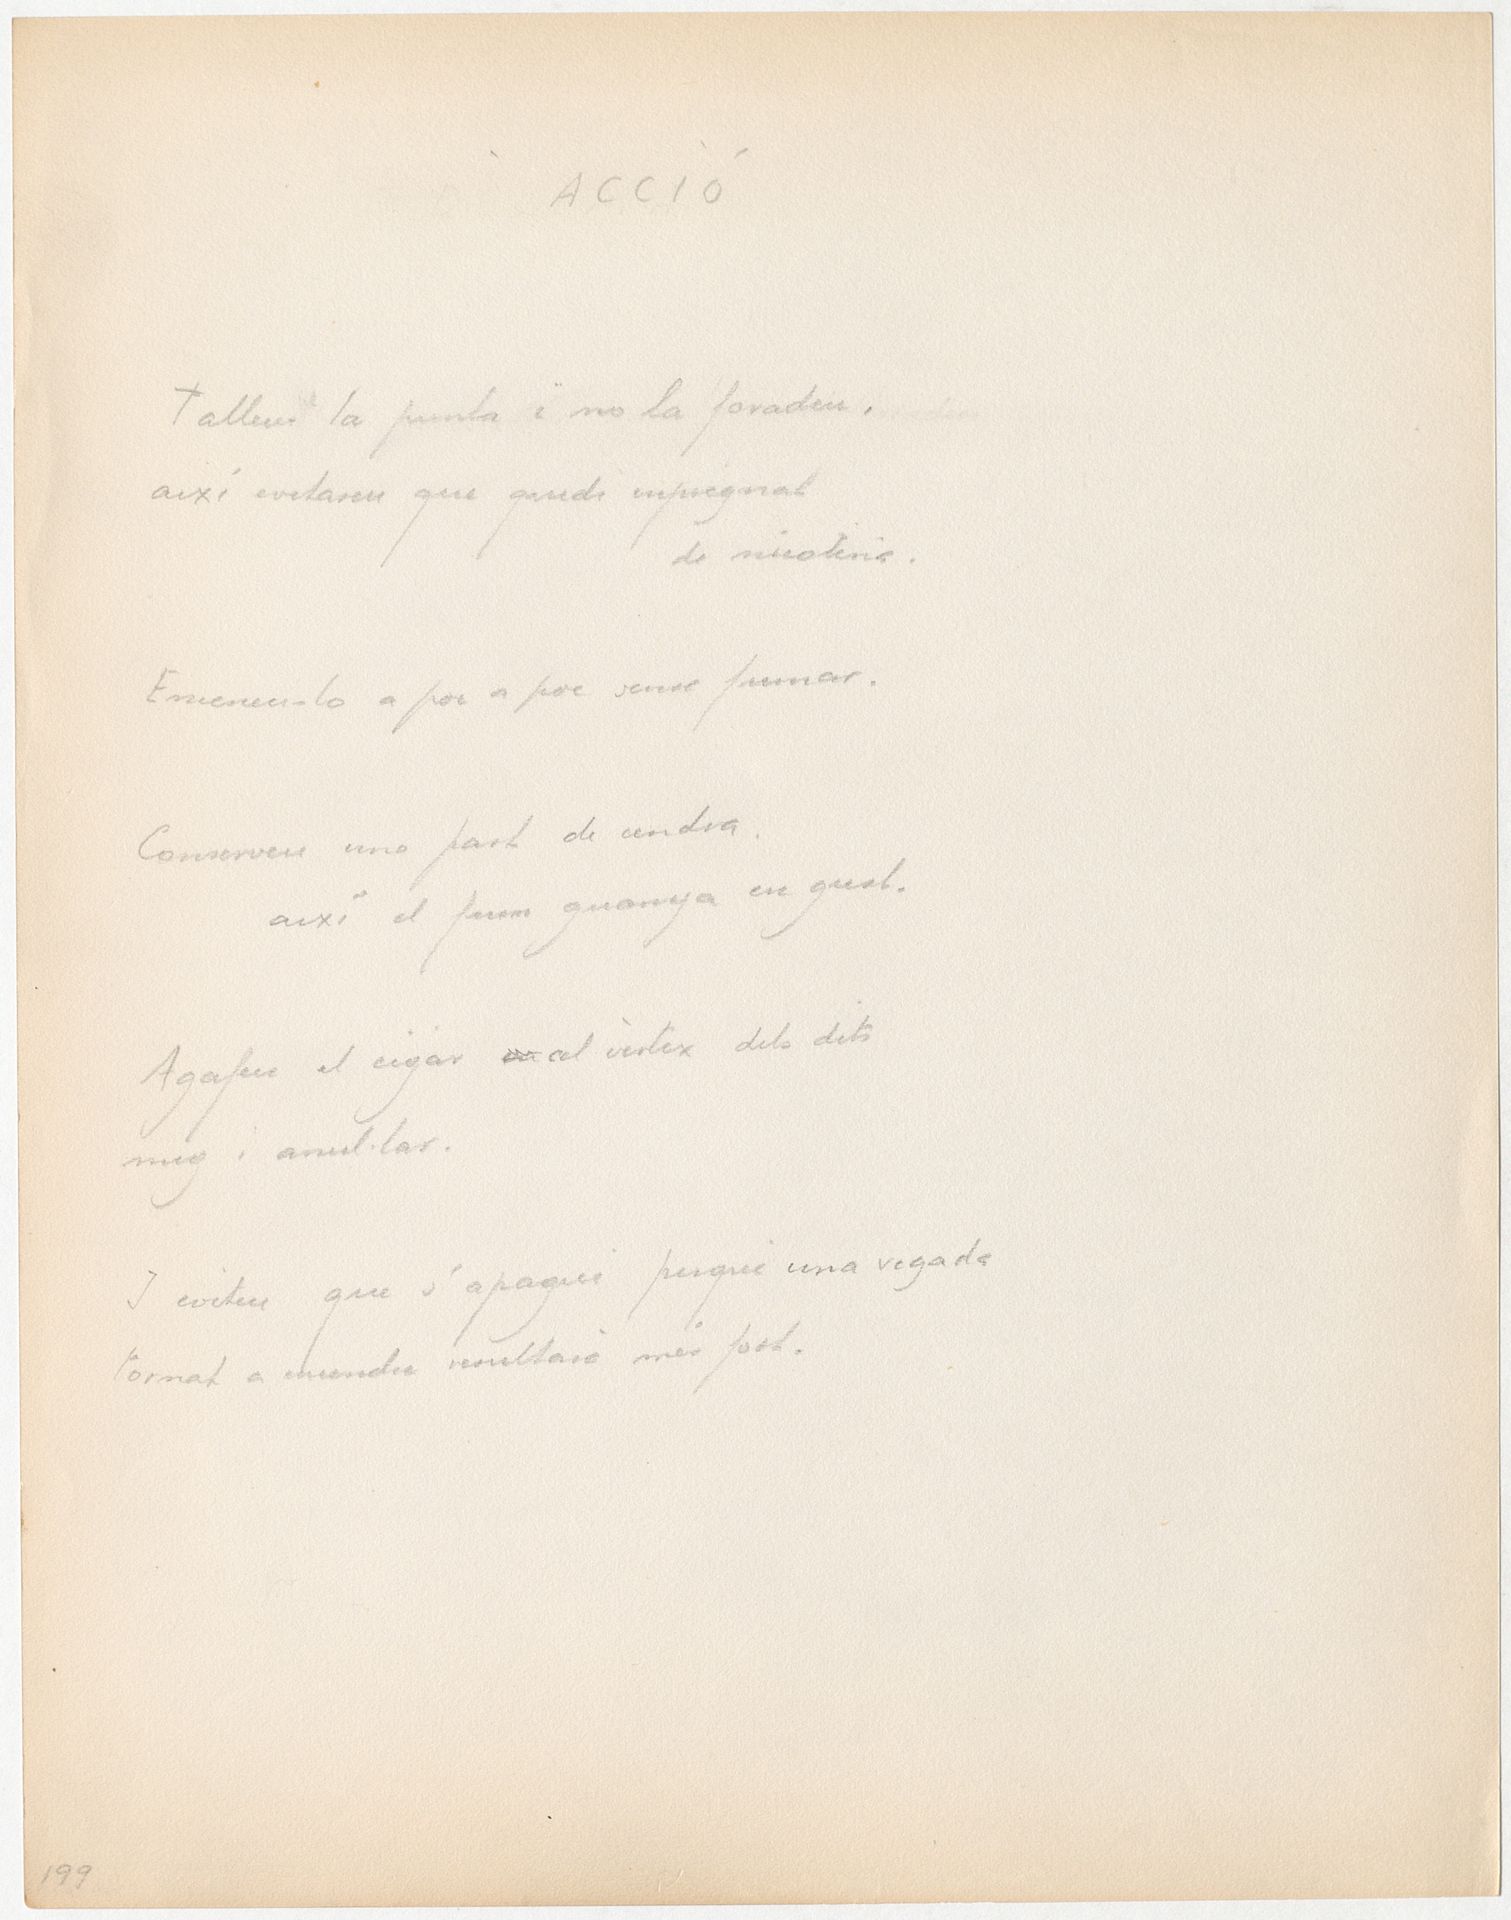 ACCIÓ
Talleu la punta i no la foradeu.
així evitareu que quedi impregnat
de nicotina.
Enceneu-lo a poc a poc sense fumar.
Conserveu una part de cendra.
així el fum guanya en gust.
Agafeu el cigar al vèrtex dels dits
mig i anul·lar.
I eviteu que s'apagui perquè una vegada
tornat a encendre resultarà més fort.
199